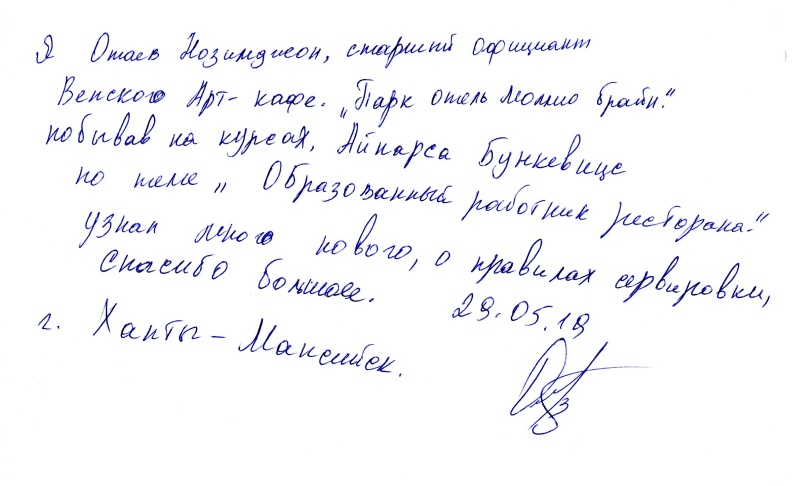 Я Отаев Нозимджон, старший официант
Венского Арт-кафе. „Парк отель Моллио Брайн."
побывав на курсах, Айнарса Бункевице
по теме „ Образованный работник ресторана."
узнал много нового, о правилах сервировки,
Спасибо большое.
29.05.19
г. Ханты-Мансийск.